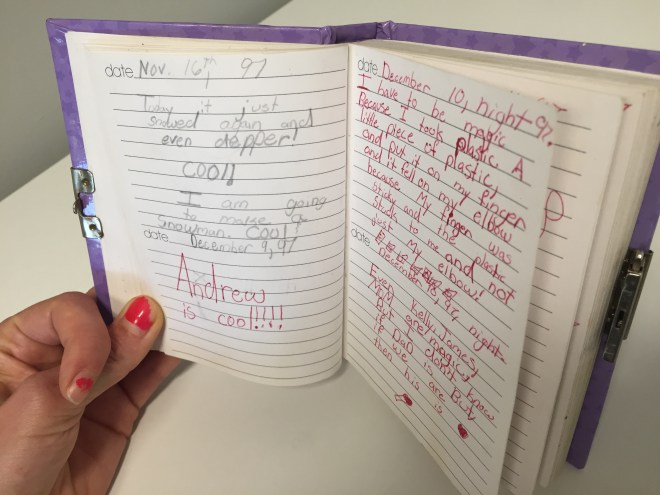 date Nov. 16th, 97
Today it just
snowed again and
even depper!
cool!
I am going
to make a
snowman. Cool!
date December 9, 97
Andrew
is cool!!!!
date December 10, night 97.
I have to be magic
Because I took plastic A
little piece of plastic,
and put it on my finger
and it fell on my elbow
because My finger was
sticky and the plastic
stuck to me and not
just My elbow!
date
December night
Even kelly, James,
MOM are magic,
But I don't know
if Dad is But
we are
then his is